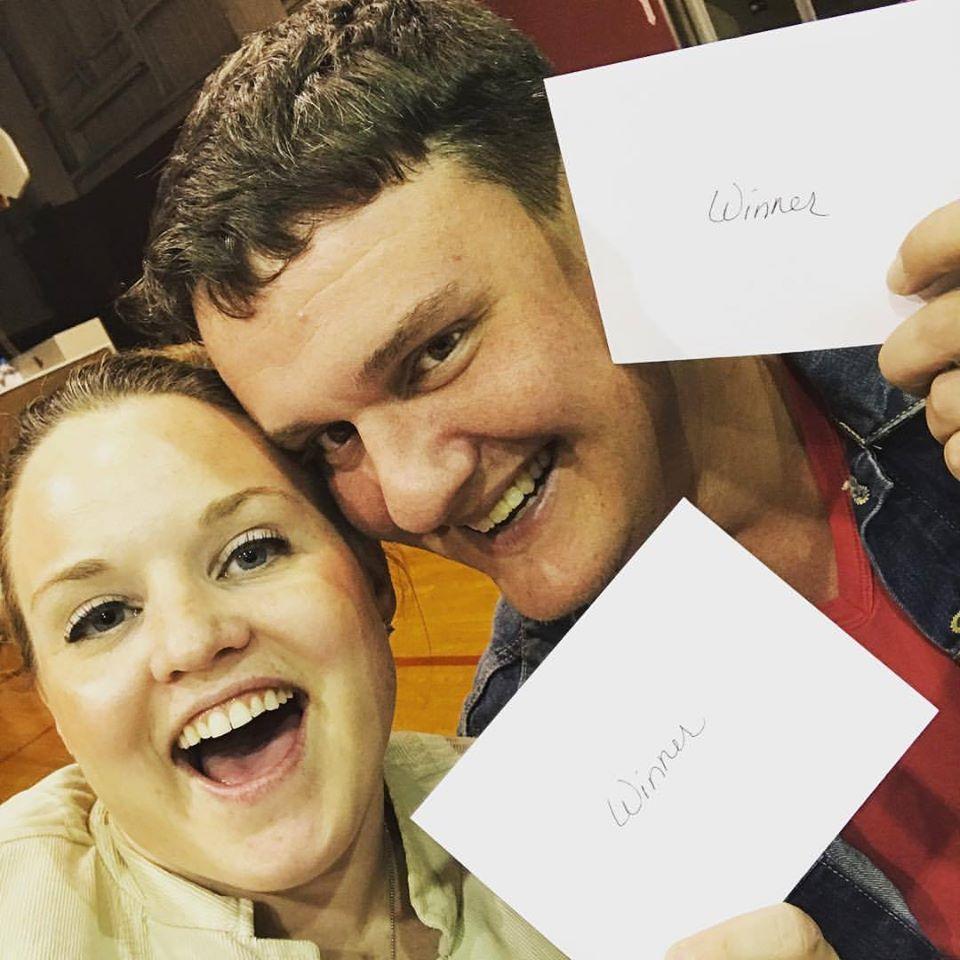 Winner
Winner